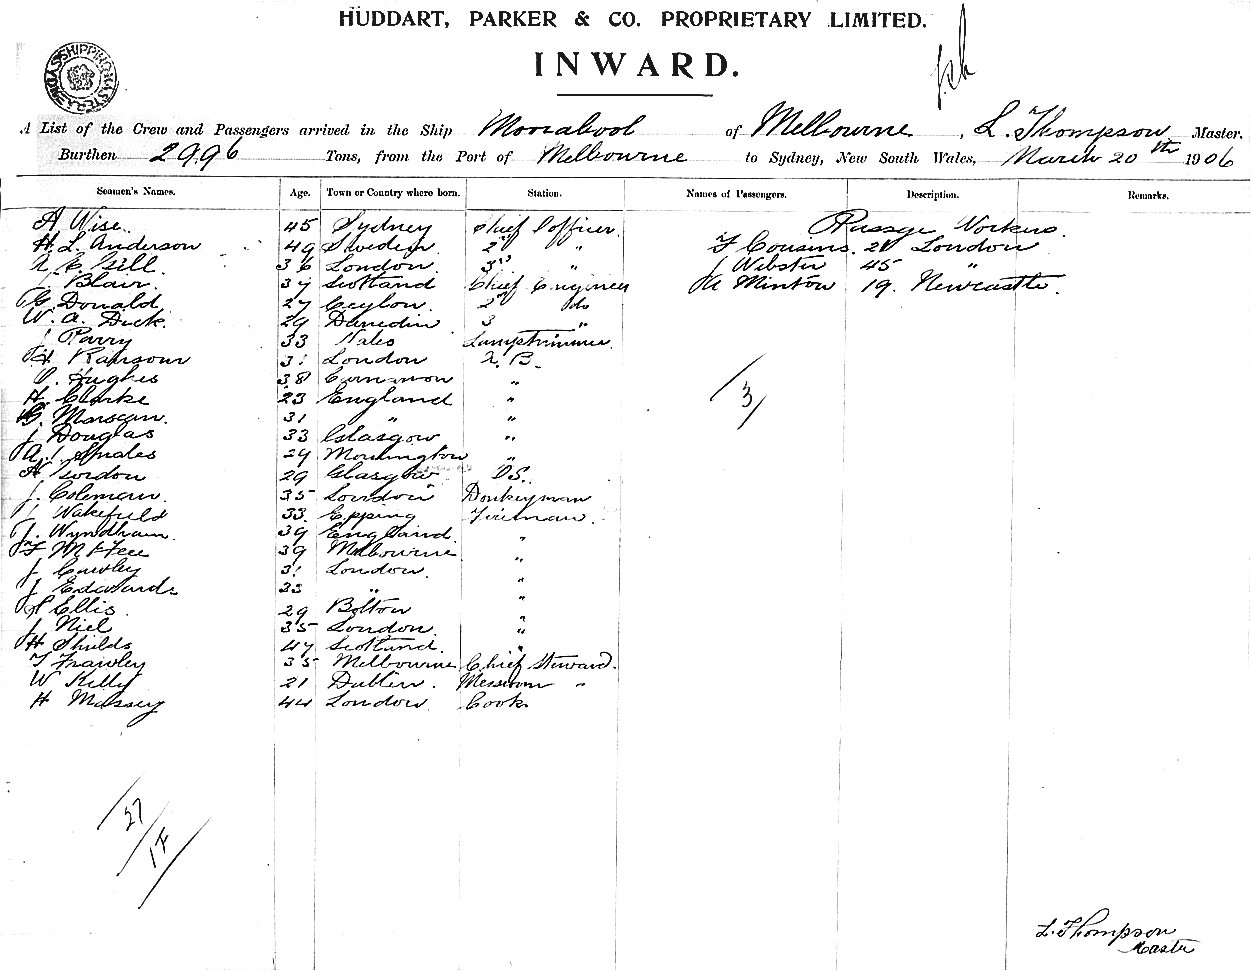 HUDDART, PARKER & CO. PROPRIETARY LIMITED.
INWARD.
SHIPPING MASTER SYDNEY
A List of the Crew and Passengers arrived in the Ship of Melbourne, L. Thompson Master.
Burthen 2996 Tons, from the Port of Melbourne to Sydney, New South Wales, March 20th 1906
Seamen's Names. Age. Town or Country where born. Station. Names of Passengers. Description. Remarks.
A Wise. 45 Sydney Chief Officer. Passage Workers.
H. L. Anderson 49 Sweden 2nd " F Cousins. London
Gill. 36 London. 3rd " J Webster 45 "
Blair. Scotland Chief Engineer Minton 19. Newcastle.
G. Donald 27 Ceylon. 2nd Do
W. A. Dick. 29 Dunedin 3 "
Parry 33 Wales Lamptrimmer.
H Ransom 31 London A. B.
Hughes 38 "
H. Clarke 23 England "
G. 31 " "
J Douglas 33 Glasgow "
A. J. 29 "
A Gordon 29 Glasgow D.S.
J. Coleman. 35 London Donkeyman
Wakefield 33. Epping Fireman.
J. Wyndham. 39 England. "
F McFee 39 Melbourne "
J Cawley 31 London. "
J Edwards 33 " "
Ellis. 29 Bolton "
J Niel 35 London. "
H Shields 47 Scotland. "
T Frawley 35 Melbourne Chief Steward.
W Kelly 21 Dublin. Messroom "
H Massey 44 London. Cook
3
27
1F
L. Thompson
Master